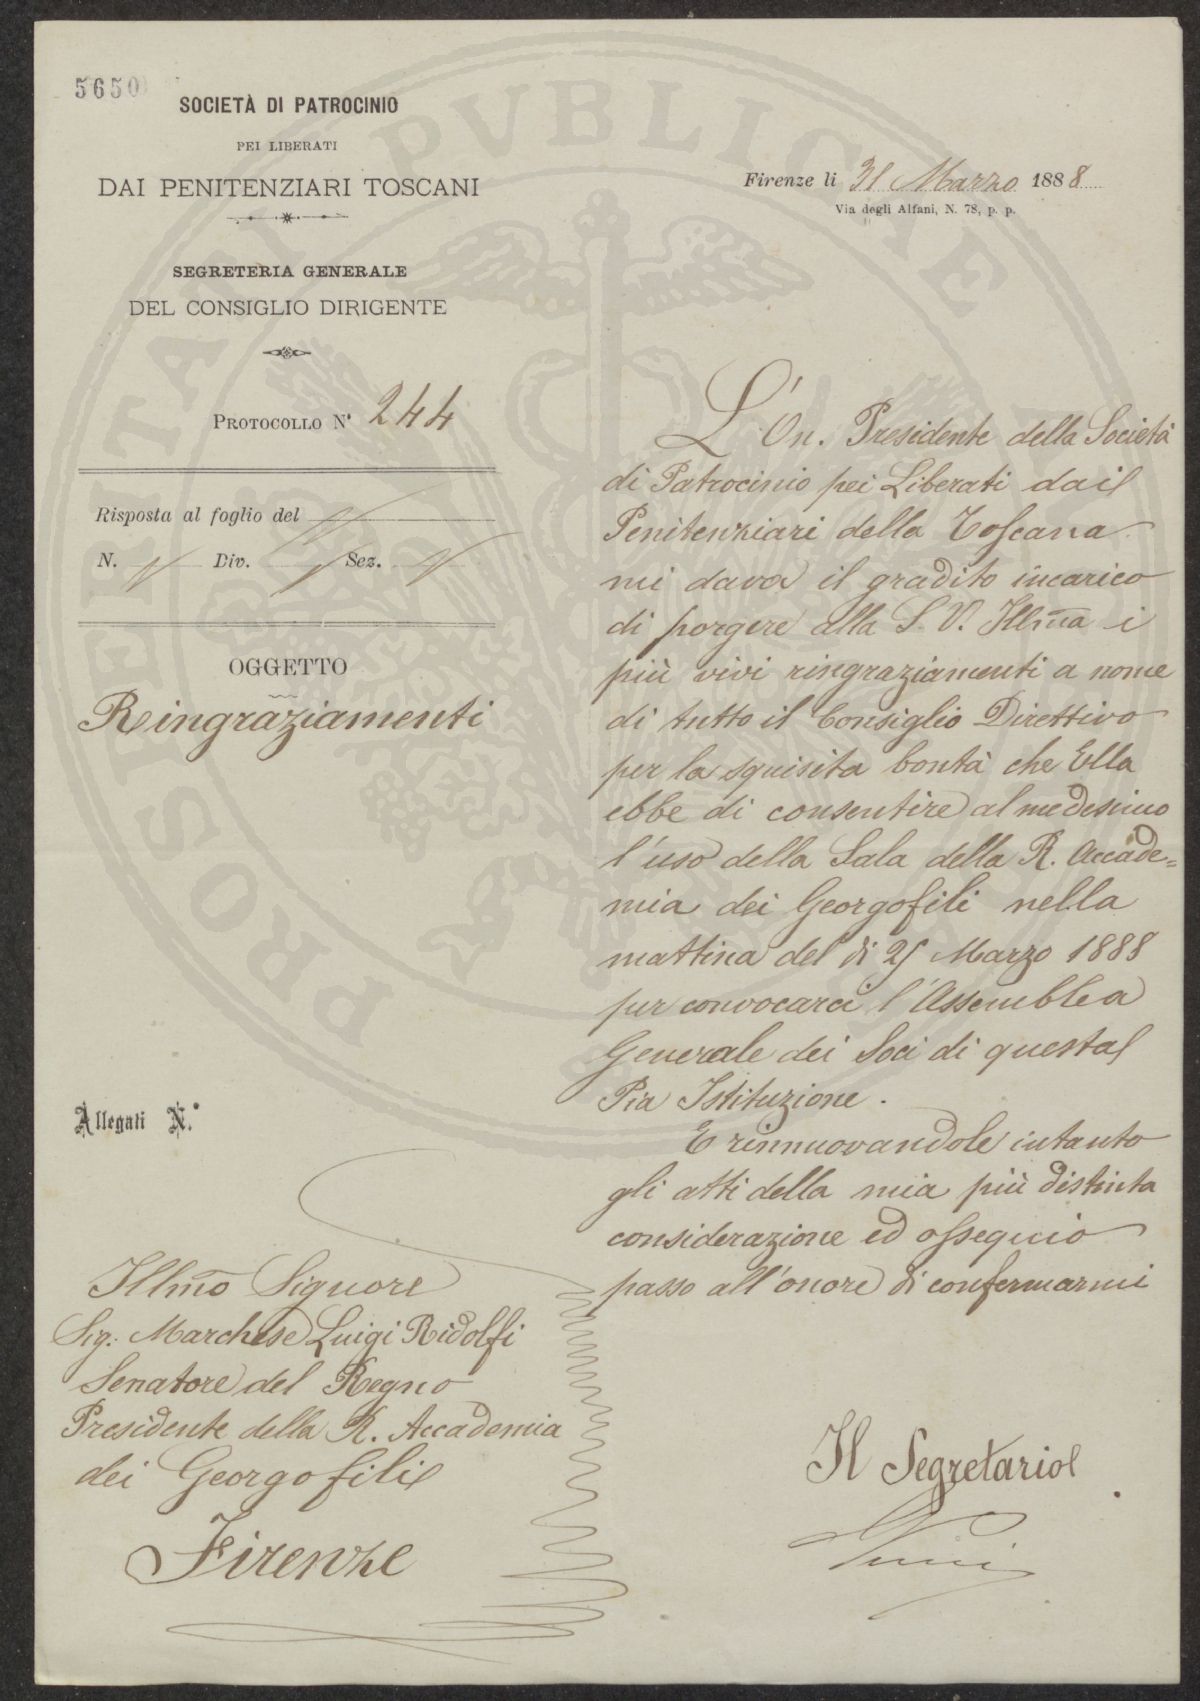 5650
SOCIETÀ DI PATROCINIO
PEI LIBERATI
DAI PENITENZIARI TOSCANI
SEGRETERIA GENERALE
DEL CONSIGLIO DIRIGENTE
PROTOCOLLO N° 244
Risposta al foglio del
N. Div. Sez.
OGGETTO
Ringraziamenti
Firenze li 31 Marzo 1888
Via degli Alfani, N. 78, p. p.
L'On. Presidente della Società
di Patrocinio pei Liberati dai
Penitenziari della Toscana
mi dava il gradito incarico
di porgere alla S. V. Illma i
più vivi ringraziamenti a nome
di tutto il Consiglio Direttivo
per la squisita bontà che Ella
ebbe di consentire al medesimo
l'uso della Sala della R. Accade=
mia dei Georgofili nella
mattina del dì Marzo 1888
per convocarci l'Assemblea
Generale dei Soci di questa
Pia Istituzione.
E rinnuovandole intanto
gli atti della mia più distinta
considerazione ed ossequio
passo all'onore di confermarmi
Il Segretario
Allegati N.°
Illmo Signore
Sig: Marchese Luigi Ridolfi
Senatore del Regno
Presidente della R. Accademia
dei Georgofili
Firenze
PROSPERITATI PVBLICAE